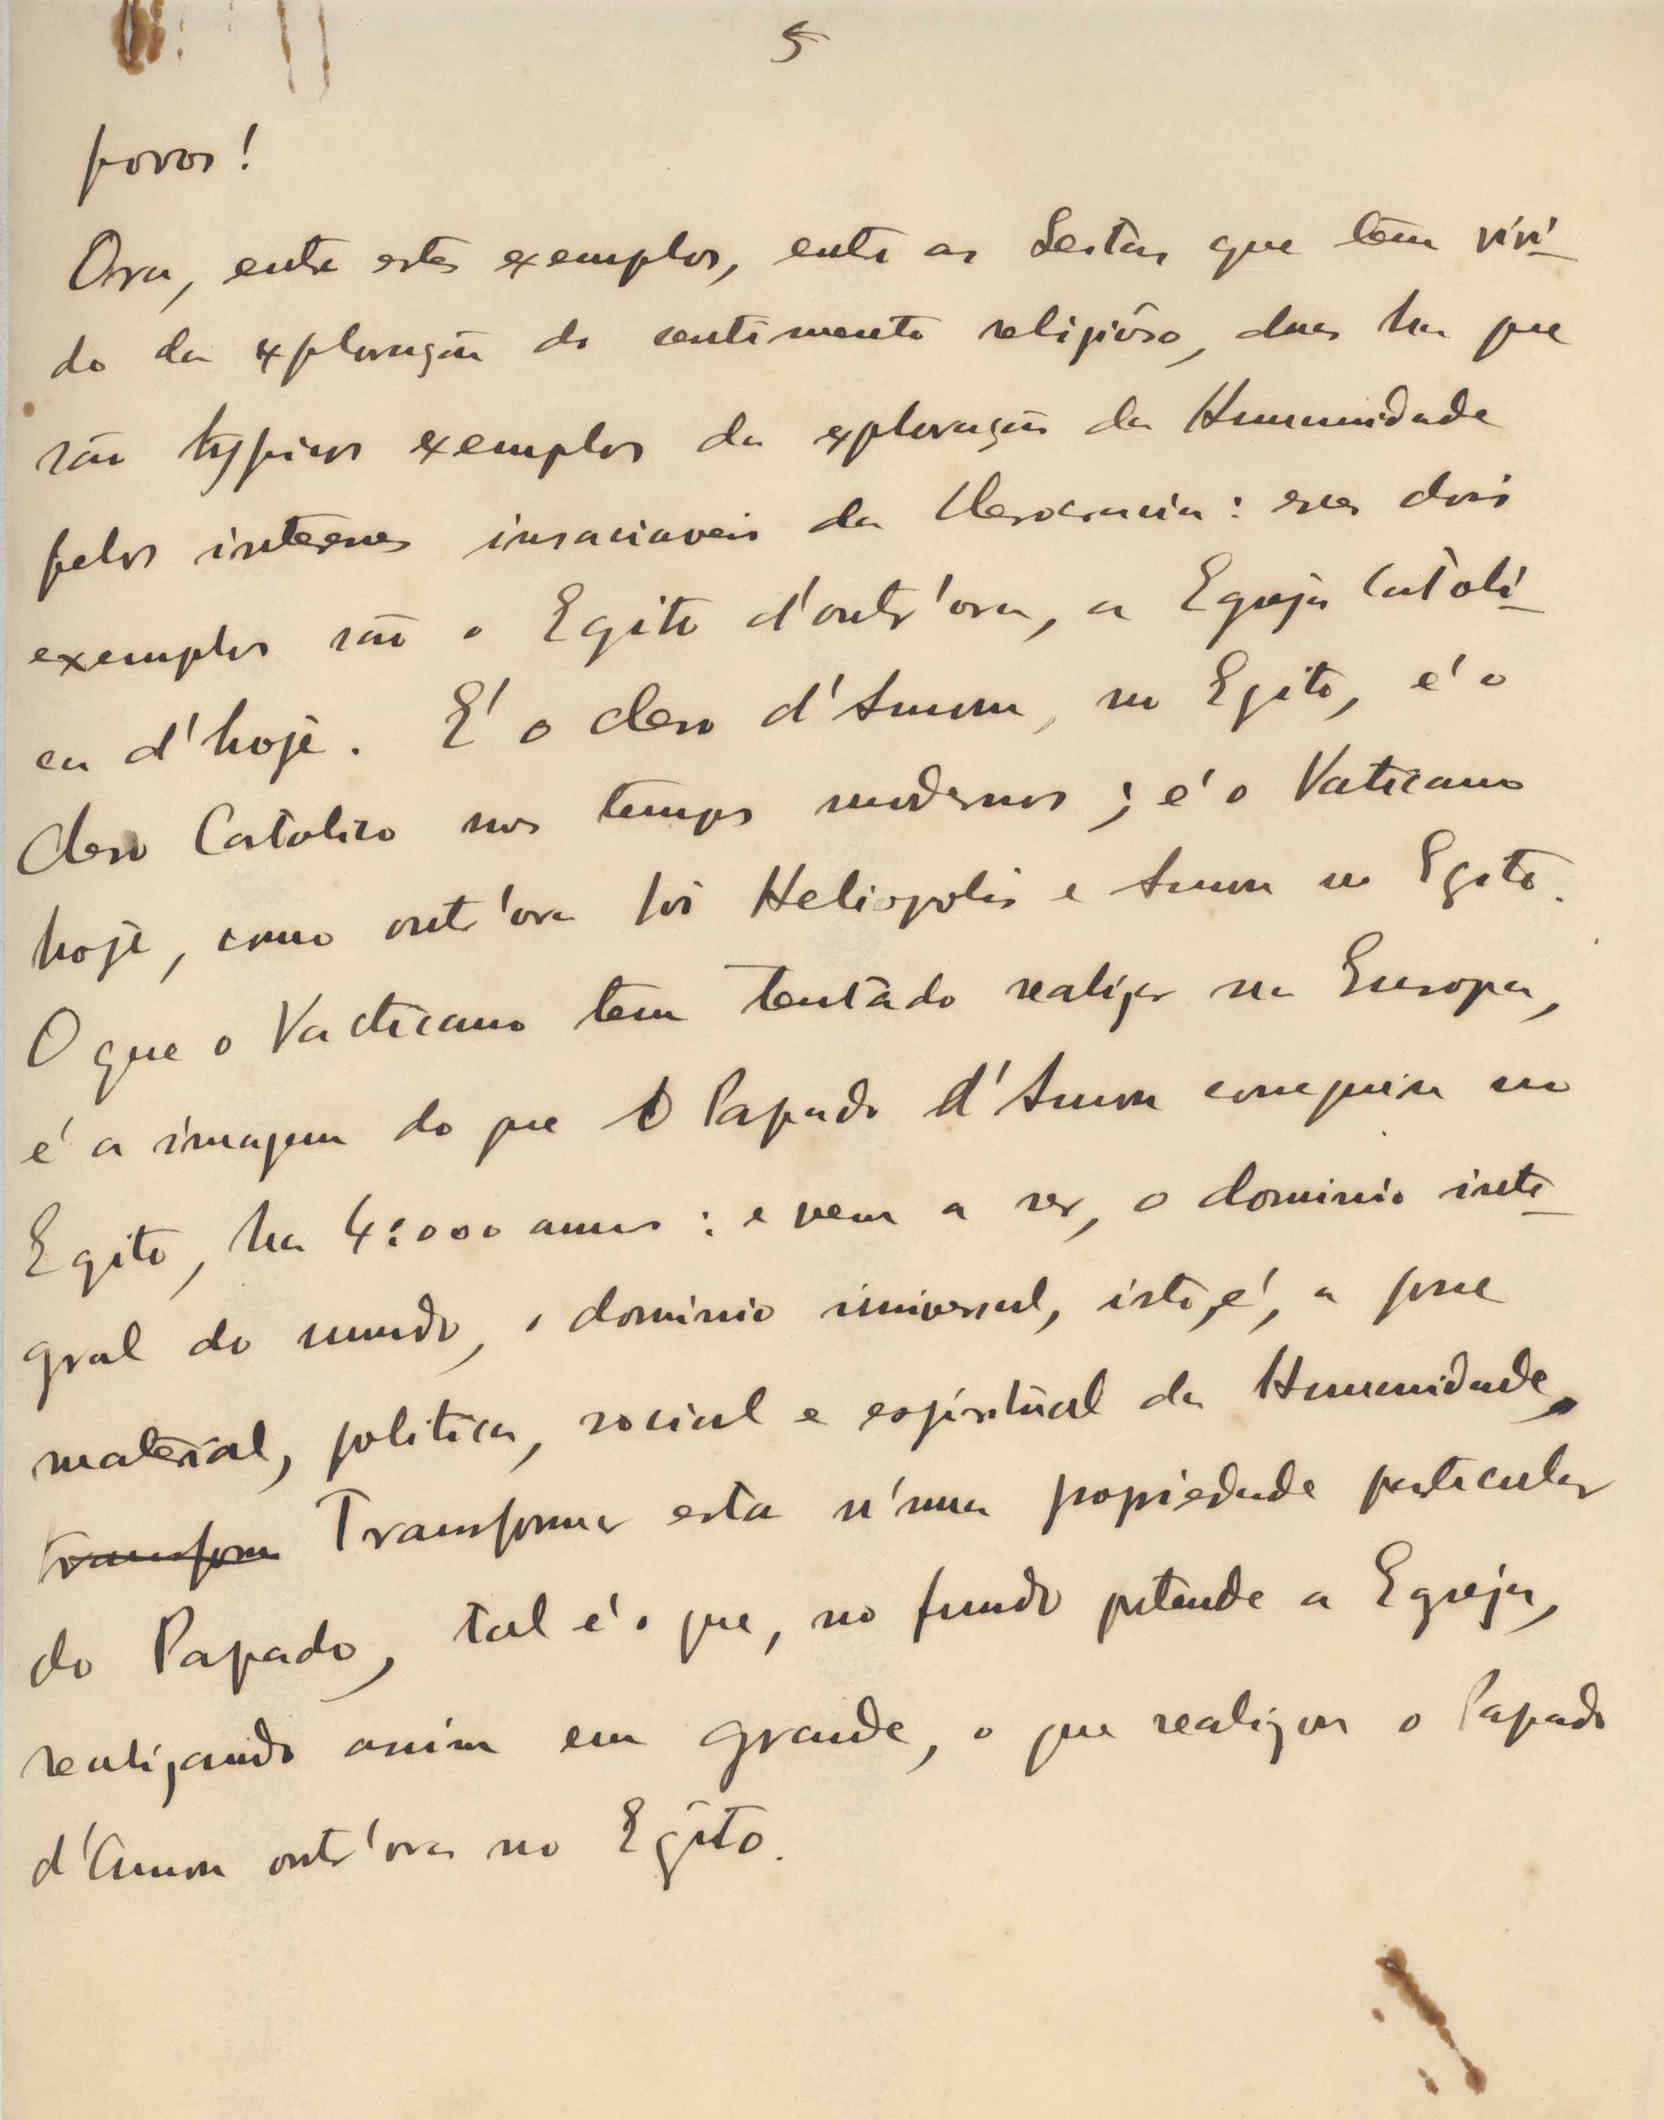 5
povos!
Ora, entre estes exemplos, entre as Seitas que têm vivi-
do da exploração do sentimento religiôso, duas ha que
são typicos exemplos da exploração da Humanidade
pelos interesses insaciaveis da Clerocracia: esses dois
exemplos são o Egito d'outr'ora, a Egreja Catoli-
ca d'hoje. E' o clero d'Amon, no Egito, é o
clero Catolico nos tempos modernos; é o Vaticano
hoje, como outr'ora foi Heliopolis e Amon no Egito.
O que o Vacticano tem tentado realizar na Europa,
é a imagem do que o Papado d'Amon conseguira no
Egito, ha 4:000 annos: e vem a ser, o dominio inte-
gral do mundo, o dominio universal, isto, é, a posse
material, politica, social e espiritual da Humanidade,
transform Transformar esta n'uma propriedade particular
do Papado, tal é o que, no fundo pretende a Egreja,
realizando assim em grande, o que realizou o Papado
d'Amon outr'ora no Egito.